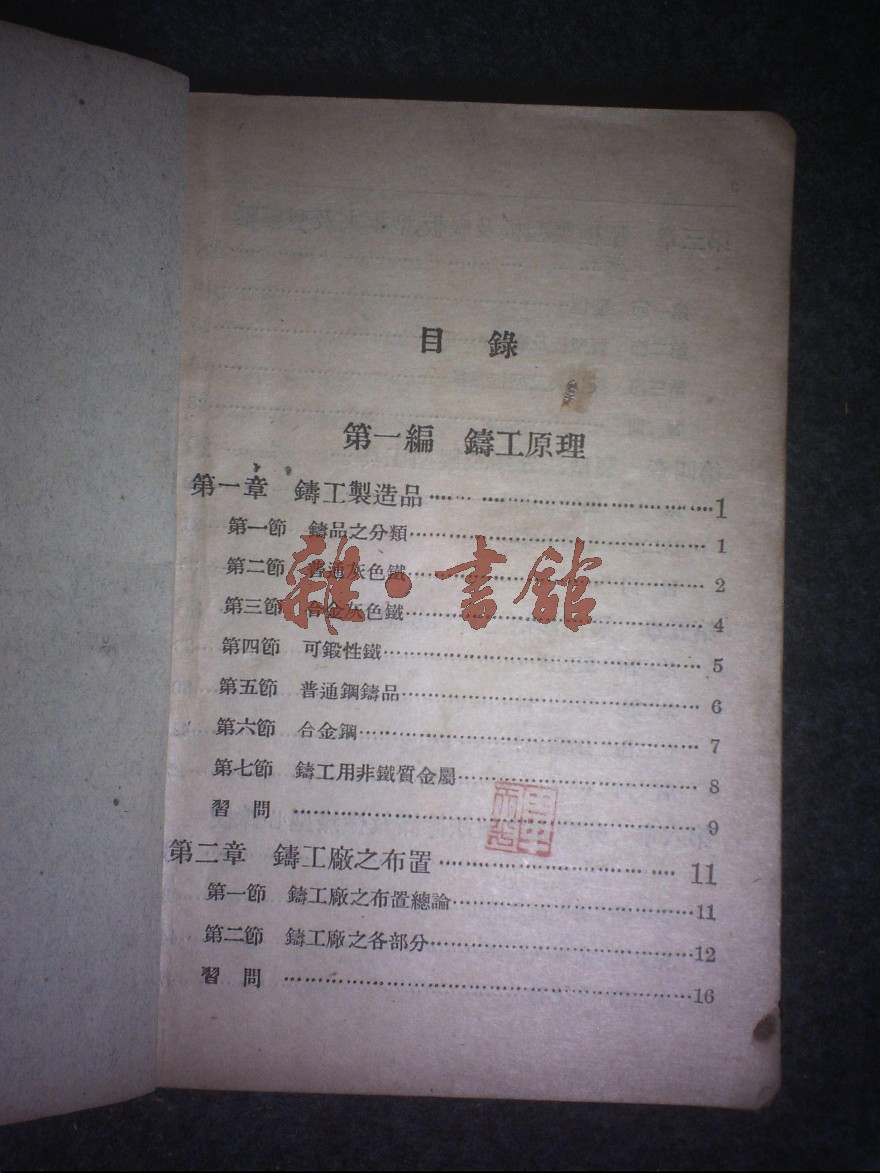 目錄
第一編 鑄工原理
第一章 鑄工製造品 1
第一節 鑄品之分類 1
第二節 普通灰色鐵 2
第三節 合金灰色鐵 4
第四節 可鍛性鐵 5
第五節 普通鋼鑄品 6
第六節 合金鋼 7
第七節 鑄工用非鐵質金屬 8
習問 9
第二章 鑄工廠之布置 11
第一節 鑄工廠之布置總論 11
第二節 鑄工廠之各部分 12
習問 16
雜·書館